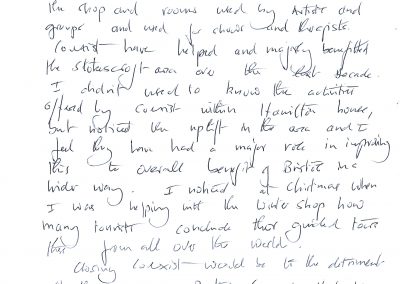 the shop and rooms used by artists and
groups and used for shows and therapists.
Coexist have helped and majorly benefitted
the Stokescroft area over the last decade.
I didn't used to know the activities
offered by coexist within Hamilton house,
but noticed the uplift in the area and I
feel they have had a major role in improving
this to overall benefit of Bristol in a
wider way. I noticed at Christmas when
I was helping with the Winter shop how
many tourists conclude their guided tours
from all over the world.
Closing coexist would be to the detriment